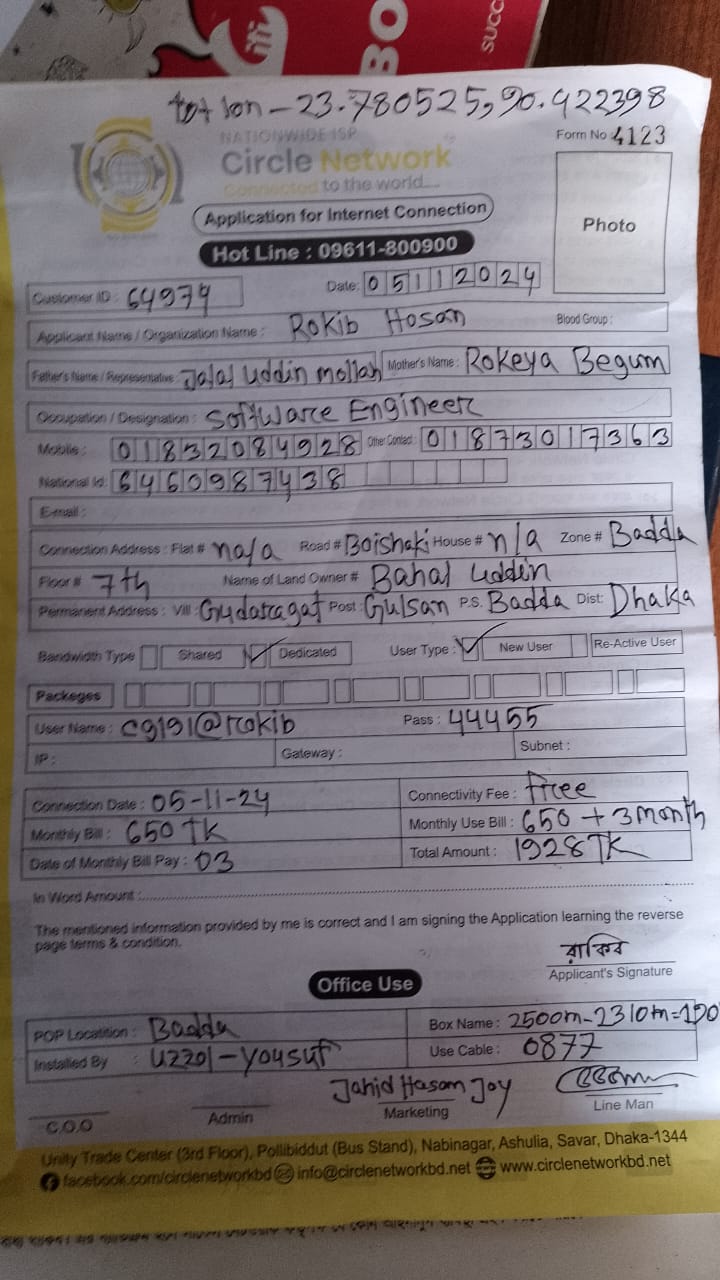 BO
SUCC
lat lon - 23.780525, 90.422398
NATIONWIDE ISP
Form No 4123
Circle Network
Connected to the world....
Application for Internet Connection
Photo
Hot Line : 09611-800900
Customer ID : 64974 Date: 05112024
Applicant Name / Organization Name : Rokib Hosan Blood Group :
Father's Name / Representative : Jalal Uddin mollah Mother's Name : Rokeya Begum
Occupation / Designation : Software Engineer
Mobile : 01832084928 Other Contact : 01873017363
National Id: 6460987438
E-mail :
Connection Address : Flat # na/a Road # Boishaki House # n/a Zone # Badda
Floor # 7th Name of Land Owner # Bahal Uddin
Permanent Address : Vill Gudaragat Post Gulsan P.S. Badda Dist: Dhaka
Bandwidth Type Shared Dedicated User Type : New User Re-Active User
Packeges
User Name : cg191@rokib Pass : 44455
IP : Gateway : Subnet :
Connection Date : 05-11-24 Connectivity Fee : free
Monthly Bill : 650 TK Monthly Use Bill : 650 + 3 month
Date of Monthly Bill Pay : 03 Total Amount : 1928 TK
In Word Amount :
The mentioned information provided by me is correct and I am signing the Application learning the reverse
page terms & condition.
রাকিব
Applicant's Signature
Office Use
POP Location : Badda Box Name : 2500m-2310m=190
Installed By : Uzzol-Yousuf Use Cable : 0877
Jahid Hasan Joy
C.O.O Admin Marketing Line Man
Unity Trade Center (3rd Floor), Pollibiddut (Bus Stand), Nabinagar, Ashulia, Savar, Dhaka-1344
facebook.com/circlenetworkbd info@circlenetworkbd.net www.circlenetworkbd.net